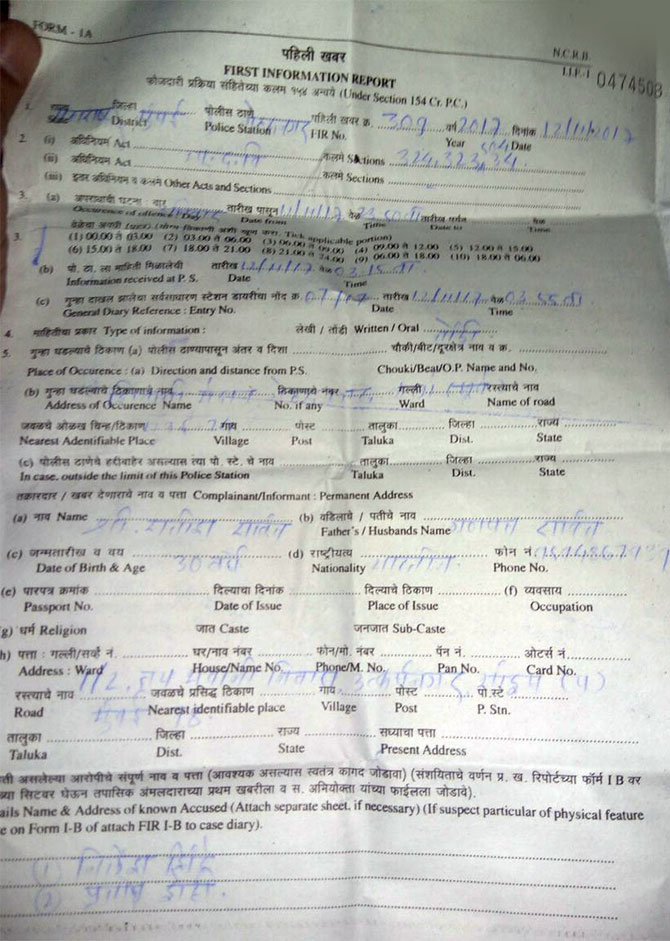 FORM - 1A
N.C.R.B.
पहिली खबर
I.I.F.-I 0474508
FIRST INFORMATION REPORT
फोजदारी प्रक्रिया संहितेच्या कलम १५४ अन्वये (Under Section 154 Cr. P.C.)
1. राज्य जिल्हा मुंबई पोलीस ठाणे पहिली खबर क्र. 309 वर्ष 2017 दिनांक 12/11/2017
State District Police Station FIR No. Year Date
2. (i) अधिनियम Act भा.द.वि कलमे Sections 324, 323, 504, 34
(ii) अधिनियम Act कलमे Sections
(iii) इतर अधिनियम व कलमे Other Acts and Sections
3. (a) अपराधाची घटना : वार तारीख पासून 11/11/17 वेळ 23.50 वा तारीख पर्यंत वेळ
Occurence of offence Day Date from Time Date to Time
3. (Tick applicable portion)
(1) 00.00 ते 03.00 (2) 03.00 ते 06.00 (3) 06.00 ते 09.00 (4) 09.00 ते 12.00 (5) 12.00 ते 15.00
(6) 15.00 ते 18.00 (7) 18.00 ते 21.00 (8) 21.00 ते 24.00 (9) 06.00 ते 18.00 (10) 18.00 ते 06.00
(b) पो. ठा. ला माहिती मिळालेची तारीख 12/11/17 वेळ 03.15 वा
Information received at P. S. Date Time
(c) गुन्हा दाखल झालेचा सर्वसाधारण स्टेशन डायरीचा नोंद क्र. 07/17 तारीख 12/11/17 वेळ 03.55 वा
General Diary Reference : Entry No. Date Time
4. माहितीचा प्रकार Type of information : लेखी / तोंडी Written / Oral तोंडी
5. गुन्हा घडल्याचे ठिकाण (a) पोलीस ठाण्यापासून अंतर व दिशा चौकी/बीट/दूरक्षेत्र नाव व क्र.
Place of Occurence : (a) Direction and distance from P.S. Chouki/Beat/O.P. Name and No.
(b) गुन्हा घडल्याचे ठिकाणाचे नाव ठिकाणाचे नंबर गल्ली रस्त्याचे नाव
Address of Occurence Name No. if any Ward Name of road
जवळचे ओळख चिन्ह/ठिकाण गांव पोस्ट तालुका जिल्हा राज्य
Nearest Adentifiable Place Village Post Taluka Dist. State
(c) पोलीस ठाणेचे हद्दीबाहेर असल्यास त्या पो. स्टे. चे नाव तालुका जिल्हा राज्य
In case, outside the limit of this Police Station Taluka Dist. State
तकारदार / खबर देणाराचे नाव व पत्ता Complainant/Informant : Permanent Address
(a) नाव Name श्री. सावंत (b) वडिलांचे / पतीचे नाव सावंत
Father's / Husbands Name
(c) जन्मतारीख व वय 30 वर्ष (d) राष्ट्रीयत्व भारतीय फोन नं
Date of Birth & Age Nationality Phone No.
(e) पारपत्र क्रमांक दिल्याचा दिनांक दिल्याचे ठिकाण (f) व्यवसाय
Passport No. Date of Issue Place of Issue Occupation
g) धर्म Religion जात Caste जनजात Sub-Caste
h) पत्ता : गल्ली/सर्व्हे नं. घर/नाव नंबर फोन/मो. नंबर पॅन नं. ओटर्स नं.
Address : Ward House/Name No. Phone/M. No. Pan No. Card No.
रस्त्याचे नाव जवळचे प्रसिद्ध ठिकाण गांव पोस्ट पो.स्टे.
Road मुंबई 78 Nearest identifiable place Village Post P. Stn.
तालुका जिल्हा राज्य सध्याचा पत्ता
Taluka Dist. State Present Address
ती असलेल्या आरोपीचे संपूर्ण नाव व पत्ता (आवश्यक असल्यास स्वतंत्र कागद जोडावा) (संशयिताचे वर्णन प्र. ख. रिपोर्टच्या फॉर्म I B वर
च्या सिटवर घेऊन तपासिक अंमलदाराच्या प्रथम खबरीला व स. अभियोक्ता यांच्या फाईलला जोडावे).
ails Name & Address of known Accused (Attach separate sheet, if necessary) (If suspect particular of physical feature
e on Form I-B of attach FIR I-B to case diary).
(1)
(2)